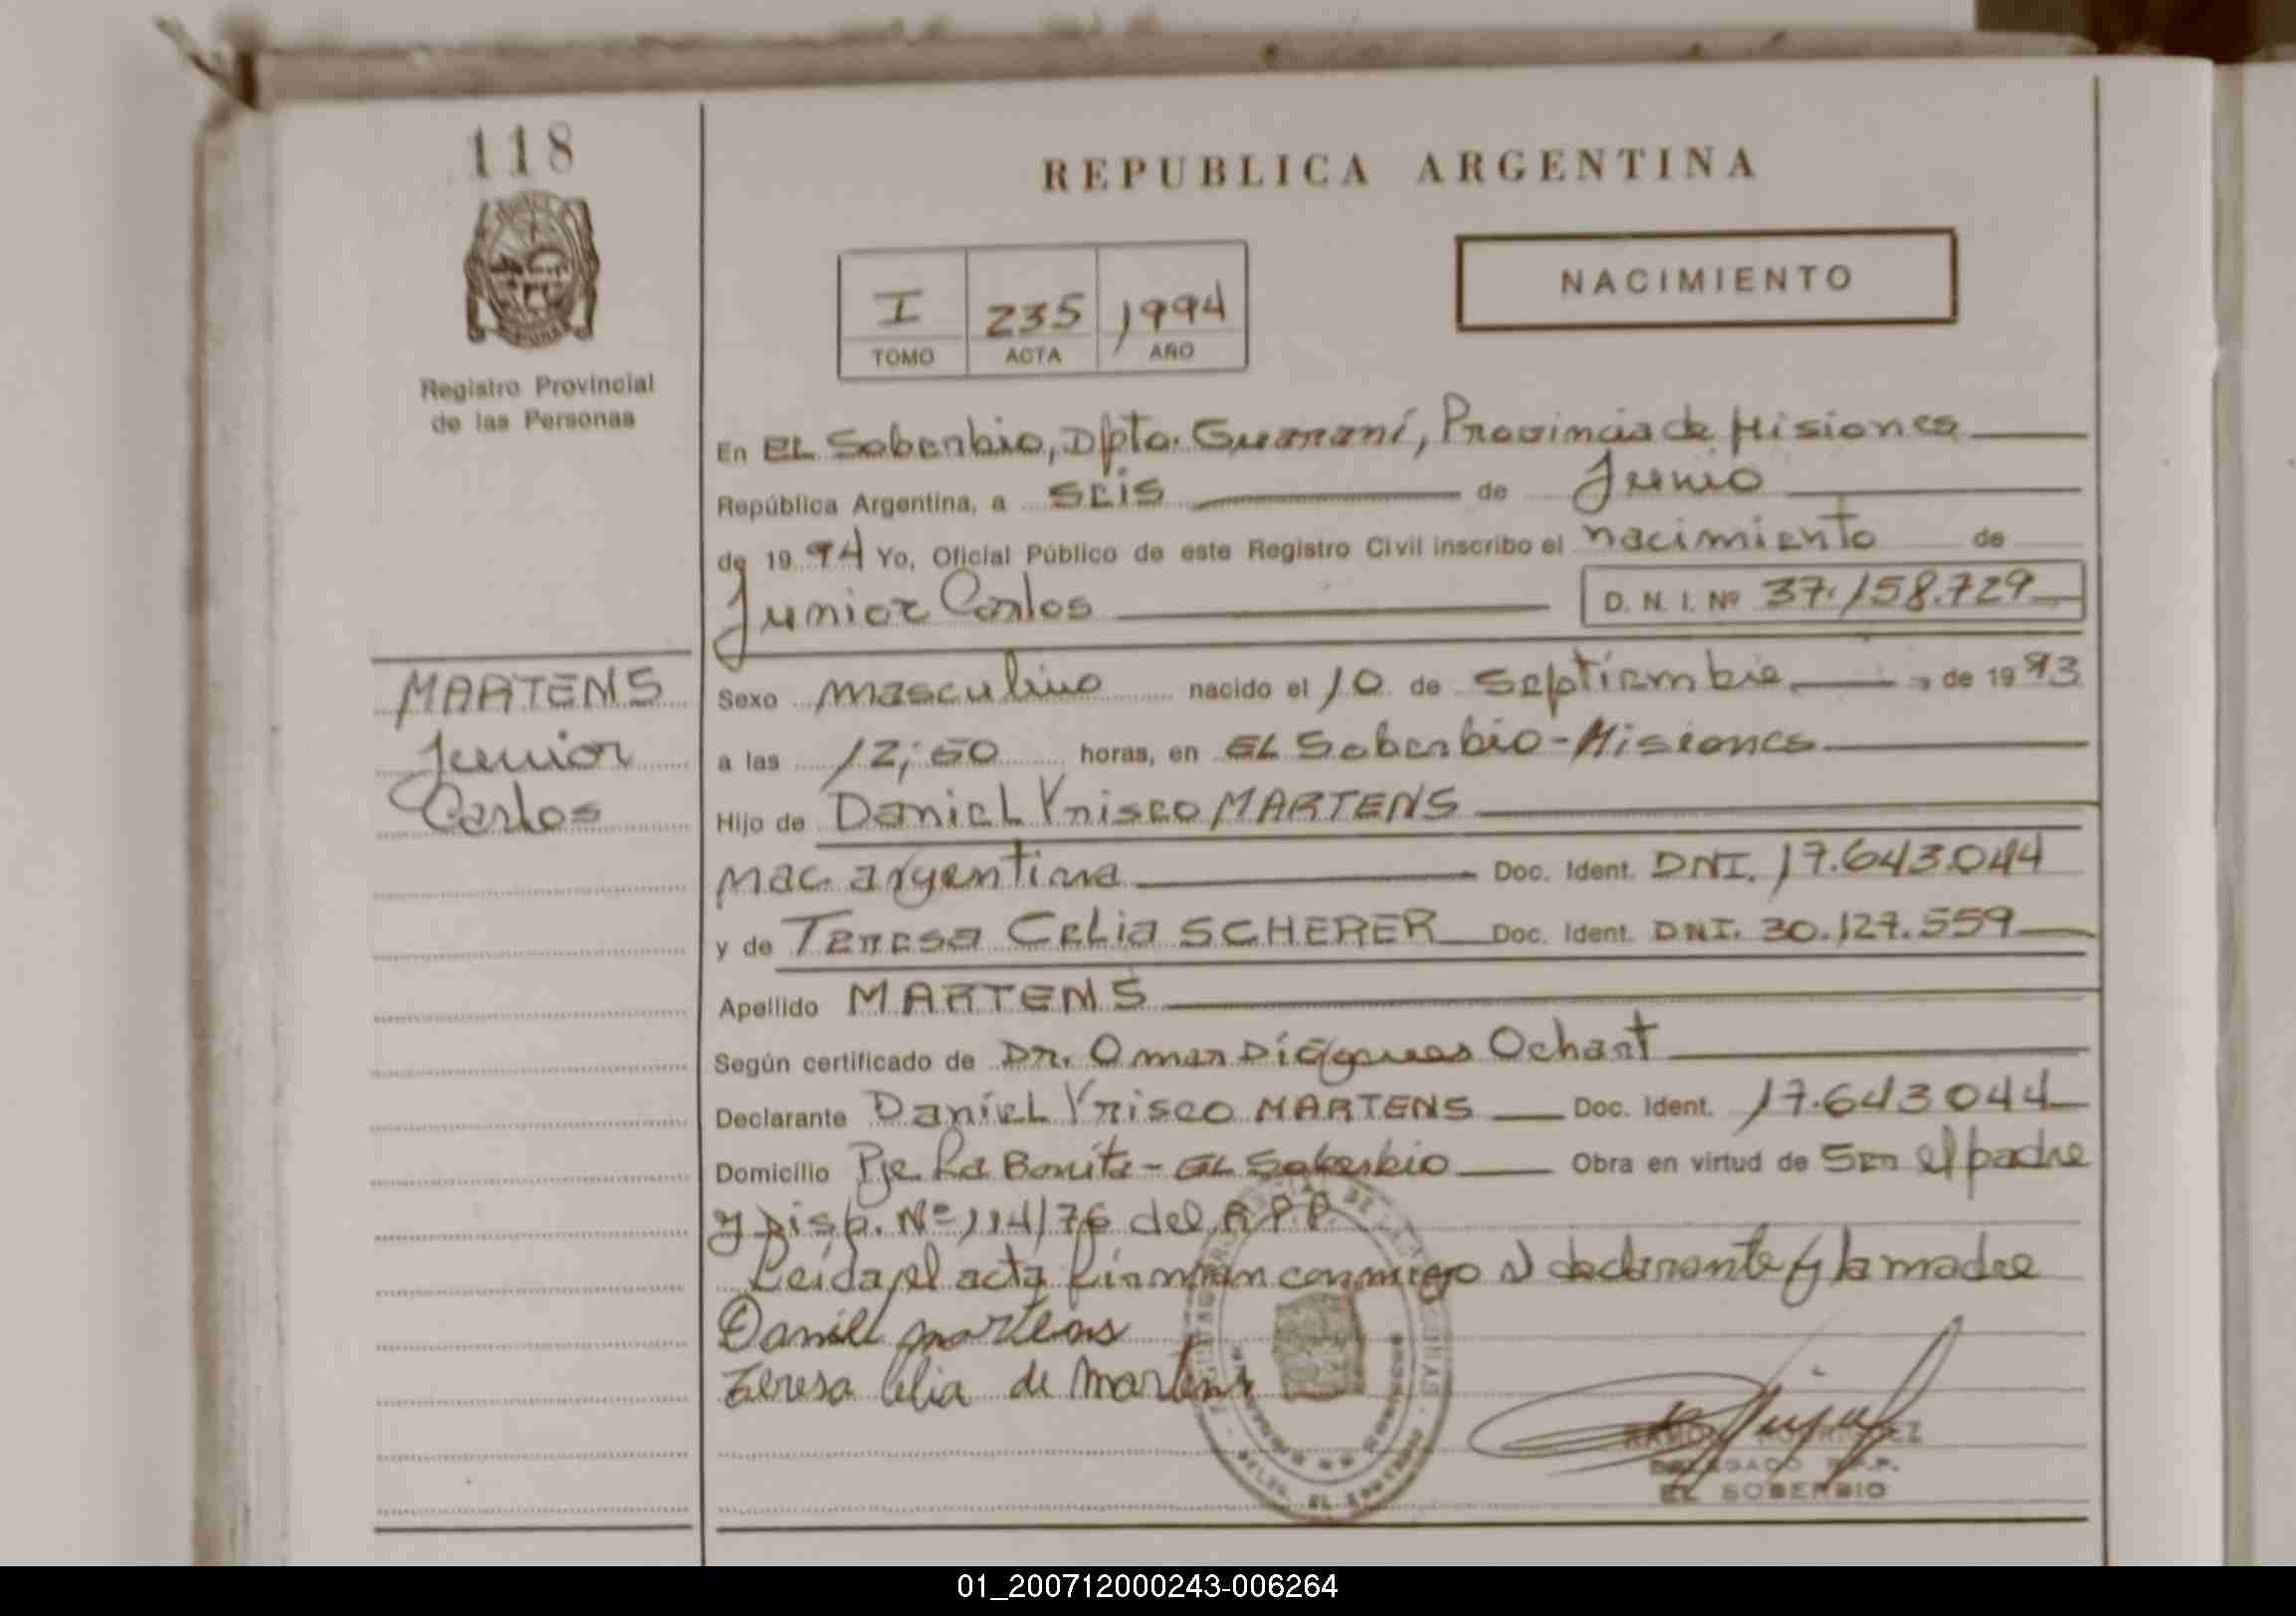 118
REPUBLICA ARGENTINA
NACIMIENTO
I 235 1994
TOMO ACTA AÑO
Registro Provincial
de las Personas
En EL Soberbio, Dpto. Guaraní, Provincia de Misiones
República Argentina, a seis de Junio
de 1994 Yo, Oficial Público de este Registro Civil inscribo el nacimiento de
Junior Carlos D. N. I. Nº 37.158.729
MARTENS
Junior
Carlos
Sexo masculino nacido el 10 de Septiembre de 1993
a las 12,50 horas, en EL Soberbio-Misiones
Hijo de Daniel Yrisco MARTENS
nac. argentina Doc. Ident. DNI. 17.643.044
y de Teresa Celia SCHERER Doc. Ident. DNI. 30.127.559
Apellido MARTENS
Según certificado de Dr. Omar Ochart
Declarante Daniel Yrisco MARTENS Doc. Ident. 17.643044
Domicilio Pje. La Bonita - EL Soberbio Obra en virtud de ser el padre
y Disp. Nº 114/76 del R.P.P.
Leida el acta firman conmigo el declarante y la madre
Daniel martens
Teresa Celia de Martens
RAMON RODRIGUEZ
DELEGADO R.P.P.
EL SOBERBIO
01_200712000243-006264